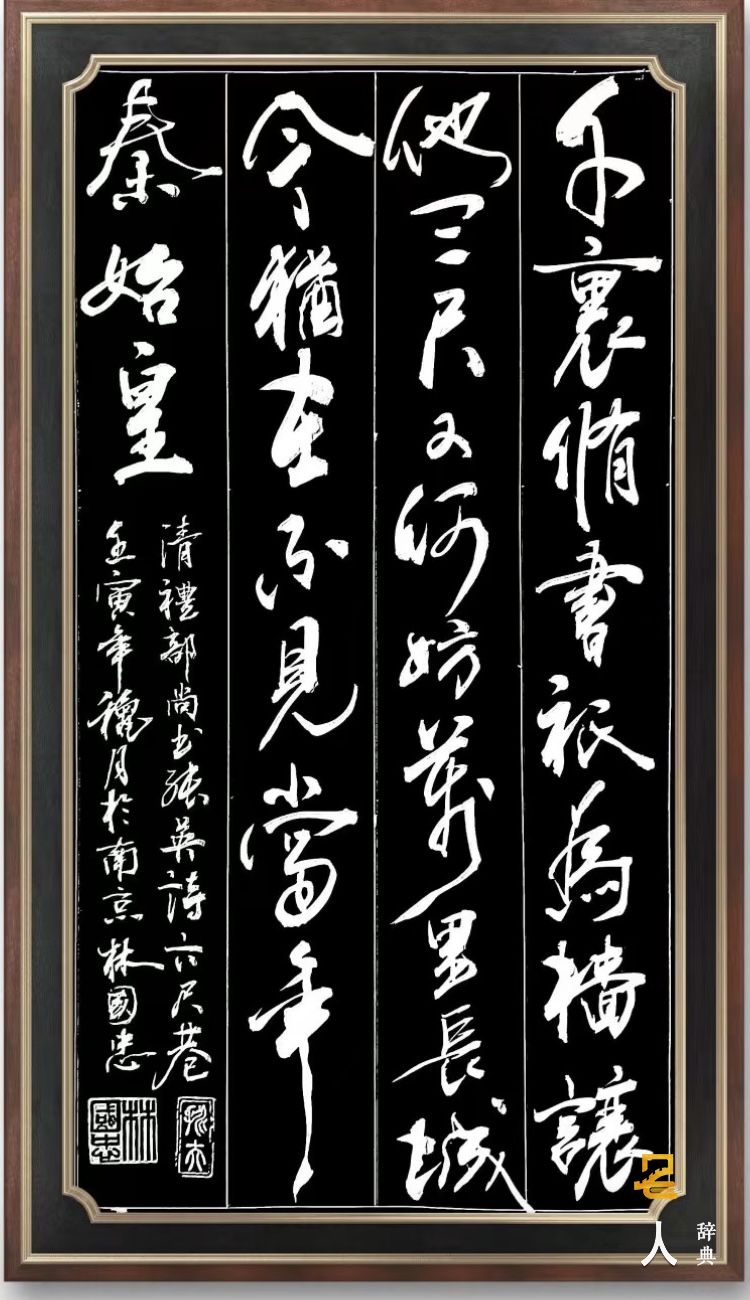 千裏脩書祇為牆讓
他三尺又何妨萬里長城
今猶在不見當年
秦始皇
清禮部尚书張英詩六尺巷
壬寅年穐月於南京林國忠
林國忠
名人
辞典